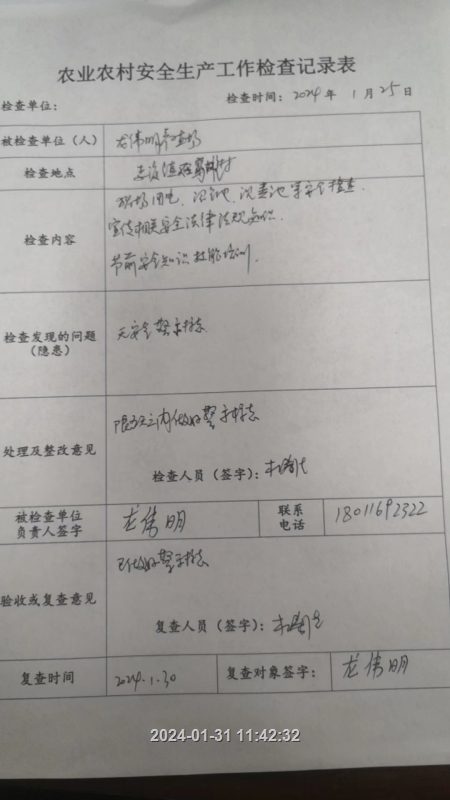 农业农村安全生产工作检查记录表
检查单位： 检查时间：2024年1月25日
被检查单位（人） 龙伟明养殖场
检查地点
检查内容 现场用电、沼气池、沉粪池等安全检查.
宣传相关安全法律法规知识.
节前安全知识技能培训.
检查发现的问题
（隐患） 无安全警示标志
处理及整改意见 限3天之内做好警示标志
检查人员（签字）：
被检查单位
负责人签字 龙伟明 联系
电话 18011692322
验收或复查意见 已做好警示标志
复查人员（签字）：
复查时间 2024.1.30 复查对象签字： 龙伟明
2024-01-31 11:42:32